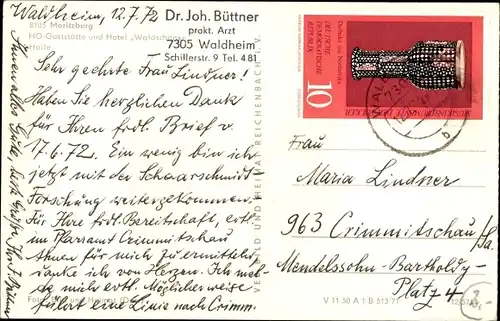 Waldheim, 12.7.72
Dr. Joh. Büttner
prakt. Arzt
7305 Waldheim
Schillerstr. 9 Tel. 481
8105 Moritzburg
HO-Gaststätte und Hotel „Waldschänke"
Sehr geehrte Frau Lindner!
Haben Sie herzlichen Dank
für Ihren frdl. Brief v.
17.6.72. Ein wenig bin ich
jetzt mit der Schaarschmidt
Forschung weitergekommen.
Für Ihre frdl. Bereitschaft, evtl.
im Pfarramt Crimmitschau
etwas für mich zu ermitteln,
danke ich von Herzen. Ich mel-
de mich evtl. Möglicherweise
führt eine Linie nach Crimm.
VERLAG BILD UND HEIMAT REICHENBACH I. V.
DEUTSCHE
DEMOKRATISCHE
REPUBLIK
10
Frau
Maria Lindner
963 Crimmitschau/Sa.
Mendelssohn-Bartholdy-
Platz 4
V 11 50 A 1 B 513/71